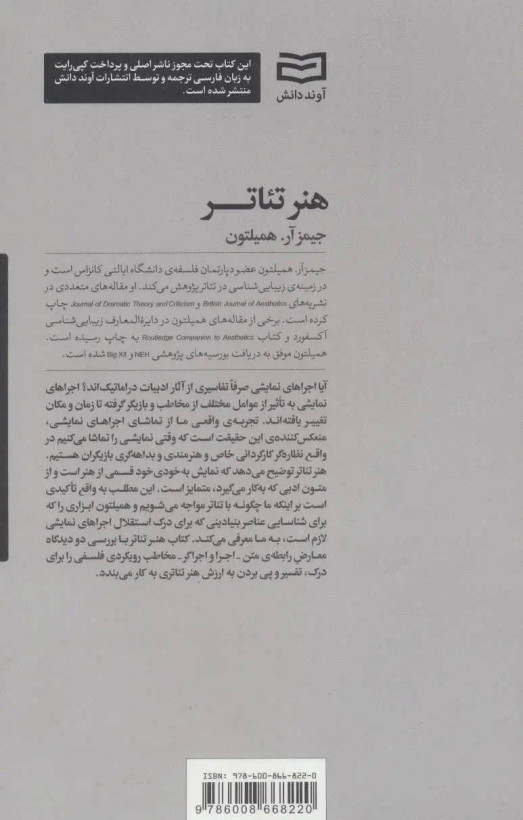 این کتاب تحت مجوز ناشر اصلی و پرداخت کپی‌رایت
به زبان فارسی ترجمه و توسط انتشارات آوند دانش
منتشر شده است.
آوند دانش
هنر تئاتر
جیمز آر. همیلتون
جیمز آر. همیلتون عضو دپارتمان فلسفه‌ی دانشگاه ایالتی کانزاس است و
در زمینه‌ی زیبایی‌شناسی در تئاتر پژوهش می‌کند. او مقاله‌های متعددی در
نشریه‌های British Journal of Aesthetics و Journal of Dramatic Theory and Criticism چاپ
کرده است. برخی از مقاله‌های همیلتون در دایرة‌المعارف زیبایی‌شناسی
آکسفورد و کتاب Routledge Companion to Aesthetics به چاپ رسیده است.
همیلتون موفق به دریافت بورسیه‌های پژوهشی NEH و Big XII شده است.
آیا اجراهای نمایشی صرفاً تفاسیری از آثار ادبیات دراماتیک‌اند؟ اجراهای
نمایشی به تأثیر از عوامل مختلف از مخاطب و بازیگر گرفته تا زمان و مکان
تغییر یافته‌اند. تجربه‌ی واقعی ما از تماشای اجراهای نمایشی،
منعکس‌کننده‌ی این حقیقت است که وقتی نمایشی را تماشا می‌کنیم در
واقع نظاره‌گر کارگردانی خاص و هنرمندی و بداهه‌گری بازیگران هستیم.
هنر تئاتر توضیح می‌دهد که نمایش به‌خودی‌خود قسمی از هنر است و از
متون ادبی که به‌کار می‌گیرد، متمایز است. این مطلب به واقع تأکیدی
است بر اینکه ما چگونه با تئاتر مواجه می‌شویم و همیلتون ابزاری را که
برای شناسایی عناصر بنیادینی که برای درک استقلال اجراهای نمایشی
لازم است، به ما معرفی می‌کند. کتاب هنر تئاتر با بررسی دو دیدگاه
معارضِ رابطه‌ی متن ـ اجرا و اجراگر ـ مخاطب رویکردی فلسفی را برای
درک، تفسیر و پی بردن به ارزش هنر تئاتری به کار می‌بندد.
ISBN: 978-600-866-822-0
9 786008 668220